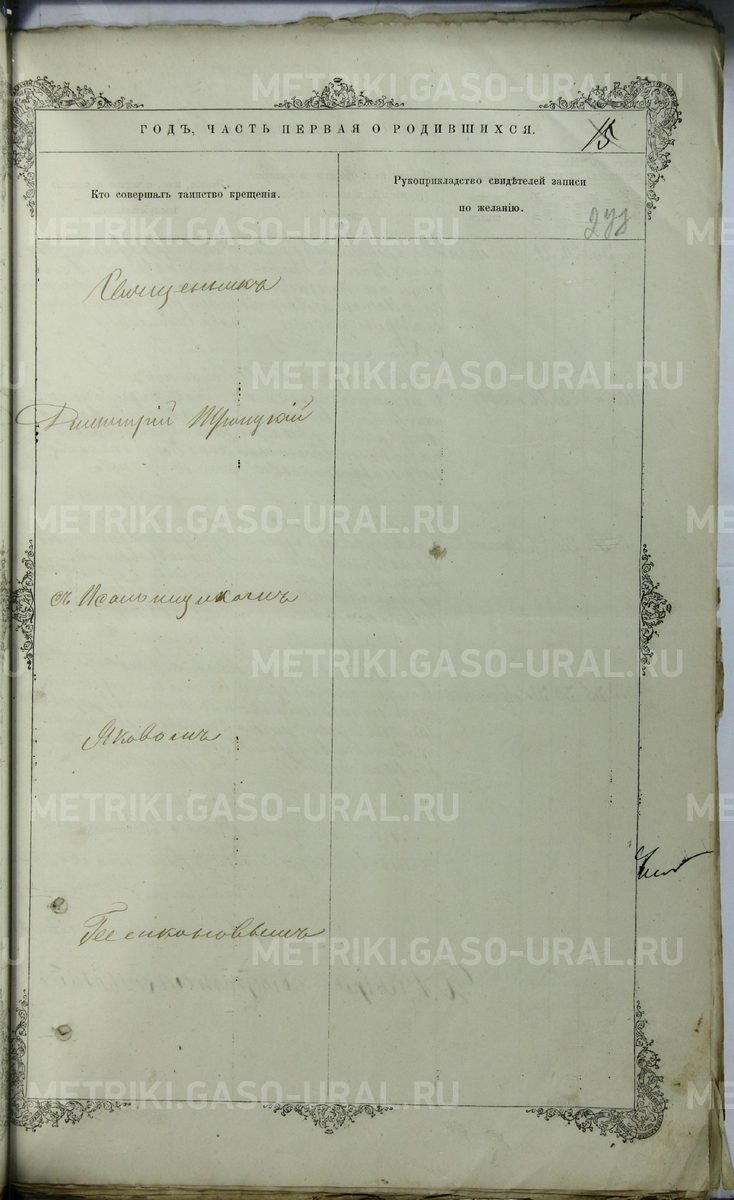 METRIKI.GASO-URAL.RU
ГОДЪ, ЧАСТЬ ПЕРВАЯ О РОДИВШИХСЯ.
15
Кто совершалъ таинство крещенія.
Рукоприкладство свидѣтелей записи
по желанію.
277
METRIKI.GASO-URAL.RU
Священникъ
METRIKI.GASO-URAL.RU
Димитрій Троицкій
METRIKI.GASO-URAL.RU
съ Псаломщикомъ
METRIKI.GASO-URAL.RU
Яковомъ
METRIKI.GASO-URAL.RU
METRIKI.GASO-URAL.RU
METRIKI.GASO-URAL.RU